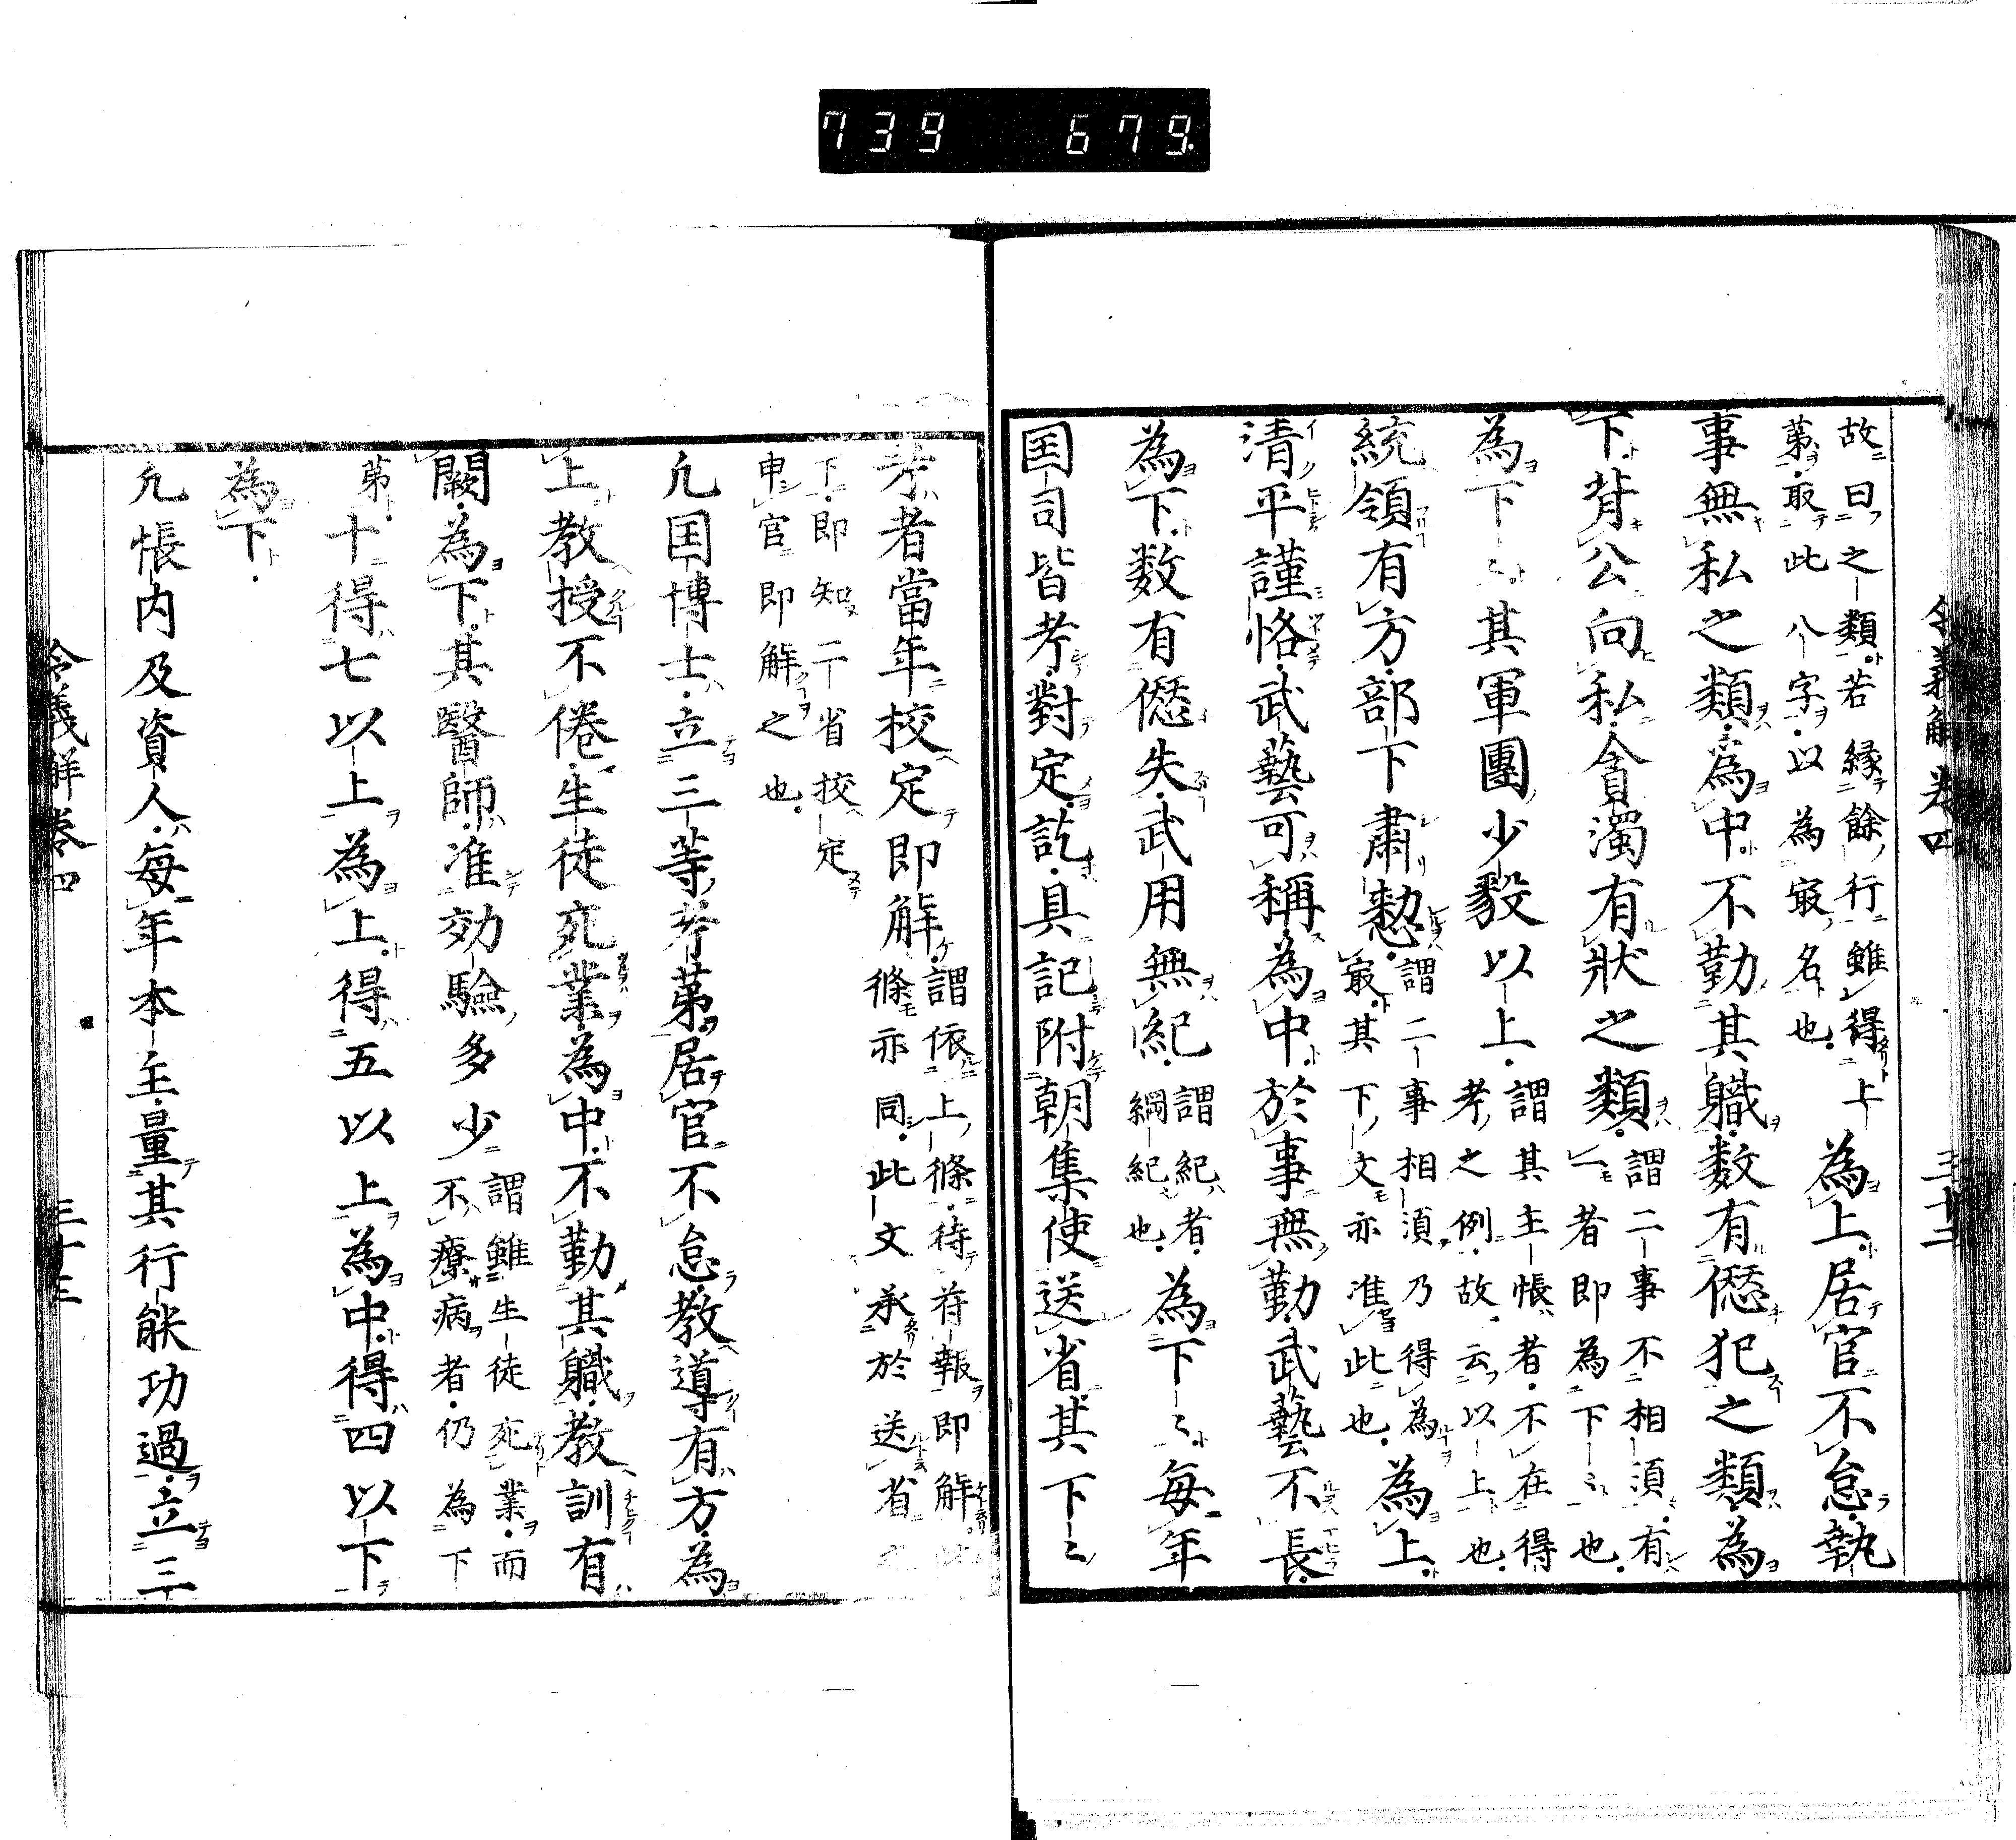 739 679
令義解卷四 三十二
故曰之類若縁餘行雖得上
第取此八字以為冣名也
為上居官不怠執
事無私之類為中不勤其職数有𠍴犯之類為
下背公向私貪濁有状之類
謂二事不相須有
一者即為下〻也
為下〻其軍團少毅以上
謂其主帳者不在得
考之例故云以上也
統領有方部下肅愸
謂二事相須乃得為
冣其下文亦准此也
為上
清平謹恪武藝可稱為中於事無勤武藝不長
為下数有𠍴失武用無紀
謂紀者
綱紀也
為下〻毎年
国司皆考對定訖具記附朝集使送省其下〻
考者當年校定即解
謂依上條待符報即解
條亦同此文承於送省
下即知二省挍定
申官即解之也
凢国博士立三等考第居官不怠教導有方為
上教授不倦生徒充業為中不勤其職教訓有
闕為下其醫師准効驗多少
謂雖生徒死業而
不療病者仍為下
第
十得七以上為上得五以上為中得四以下
為下
凢帳内及資人毎年本主量其行能功過立三
令義解卷四 三十三